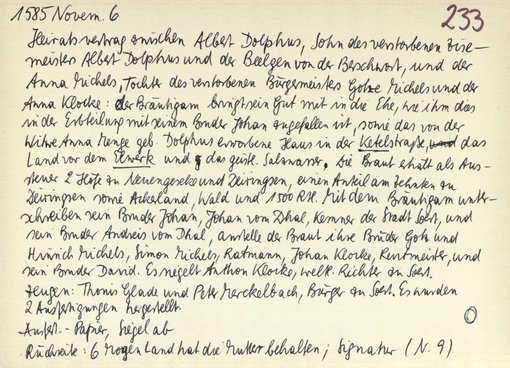 1585 Novem. 6
233
Heiratsvertrag zwischen Albert Dolphus, Sohn des verstorbenen Zise-
meister Albert Dolphus und der Beelgen von der Berswort, und der
Anna Michels, Tochter des verstorbenen Bürgermeister Gotze Michels und der
Anna Klocke: der Bräutigam bringt sein Gut mit in die Ehe, wie ihm dies
in der Erbteilung mit seinem Bruder Johan zugefallen ist, sowie das von der
Witwe Anna Menge geb. Dolphus erworbene Haus in der Ketelstraße, und das
Land vor dem Elwerk und das geistl. Salzwasser. Die Braut erhält als Aus-
steuer 2 Höfe zu Neuengeseke und Deiringsen, einen Anteil am Zehnten zu
Deiringsen sowie Ackerland, Wald und 1500 Rth. Mit dem Bräutigam unter-
schreiben sein Bruder Johan, Johan vom Dhal, Kemner der Stadt Soest, und
sein Bruder Andreis vom Dhal, anstelle der Braut ihre Brüder Gotz und
Hinrich Michels, Simon Michels, Ratmann, Johan Klocke, Rentmeister, und
sein Bruder David. Es siegelt Anthon Klocke, weltl. Richter zu Soest.
Zeugen: Thonis Glade und Peter Merckelbach, Bürger zu Soest. Es wurden
2 Ausfertigungen hergestellt.
Ausf. - Papier, Siegel ab
Rückseite: 6 Morgen Land hat die Mutter behalten; Signatur (N. 9)